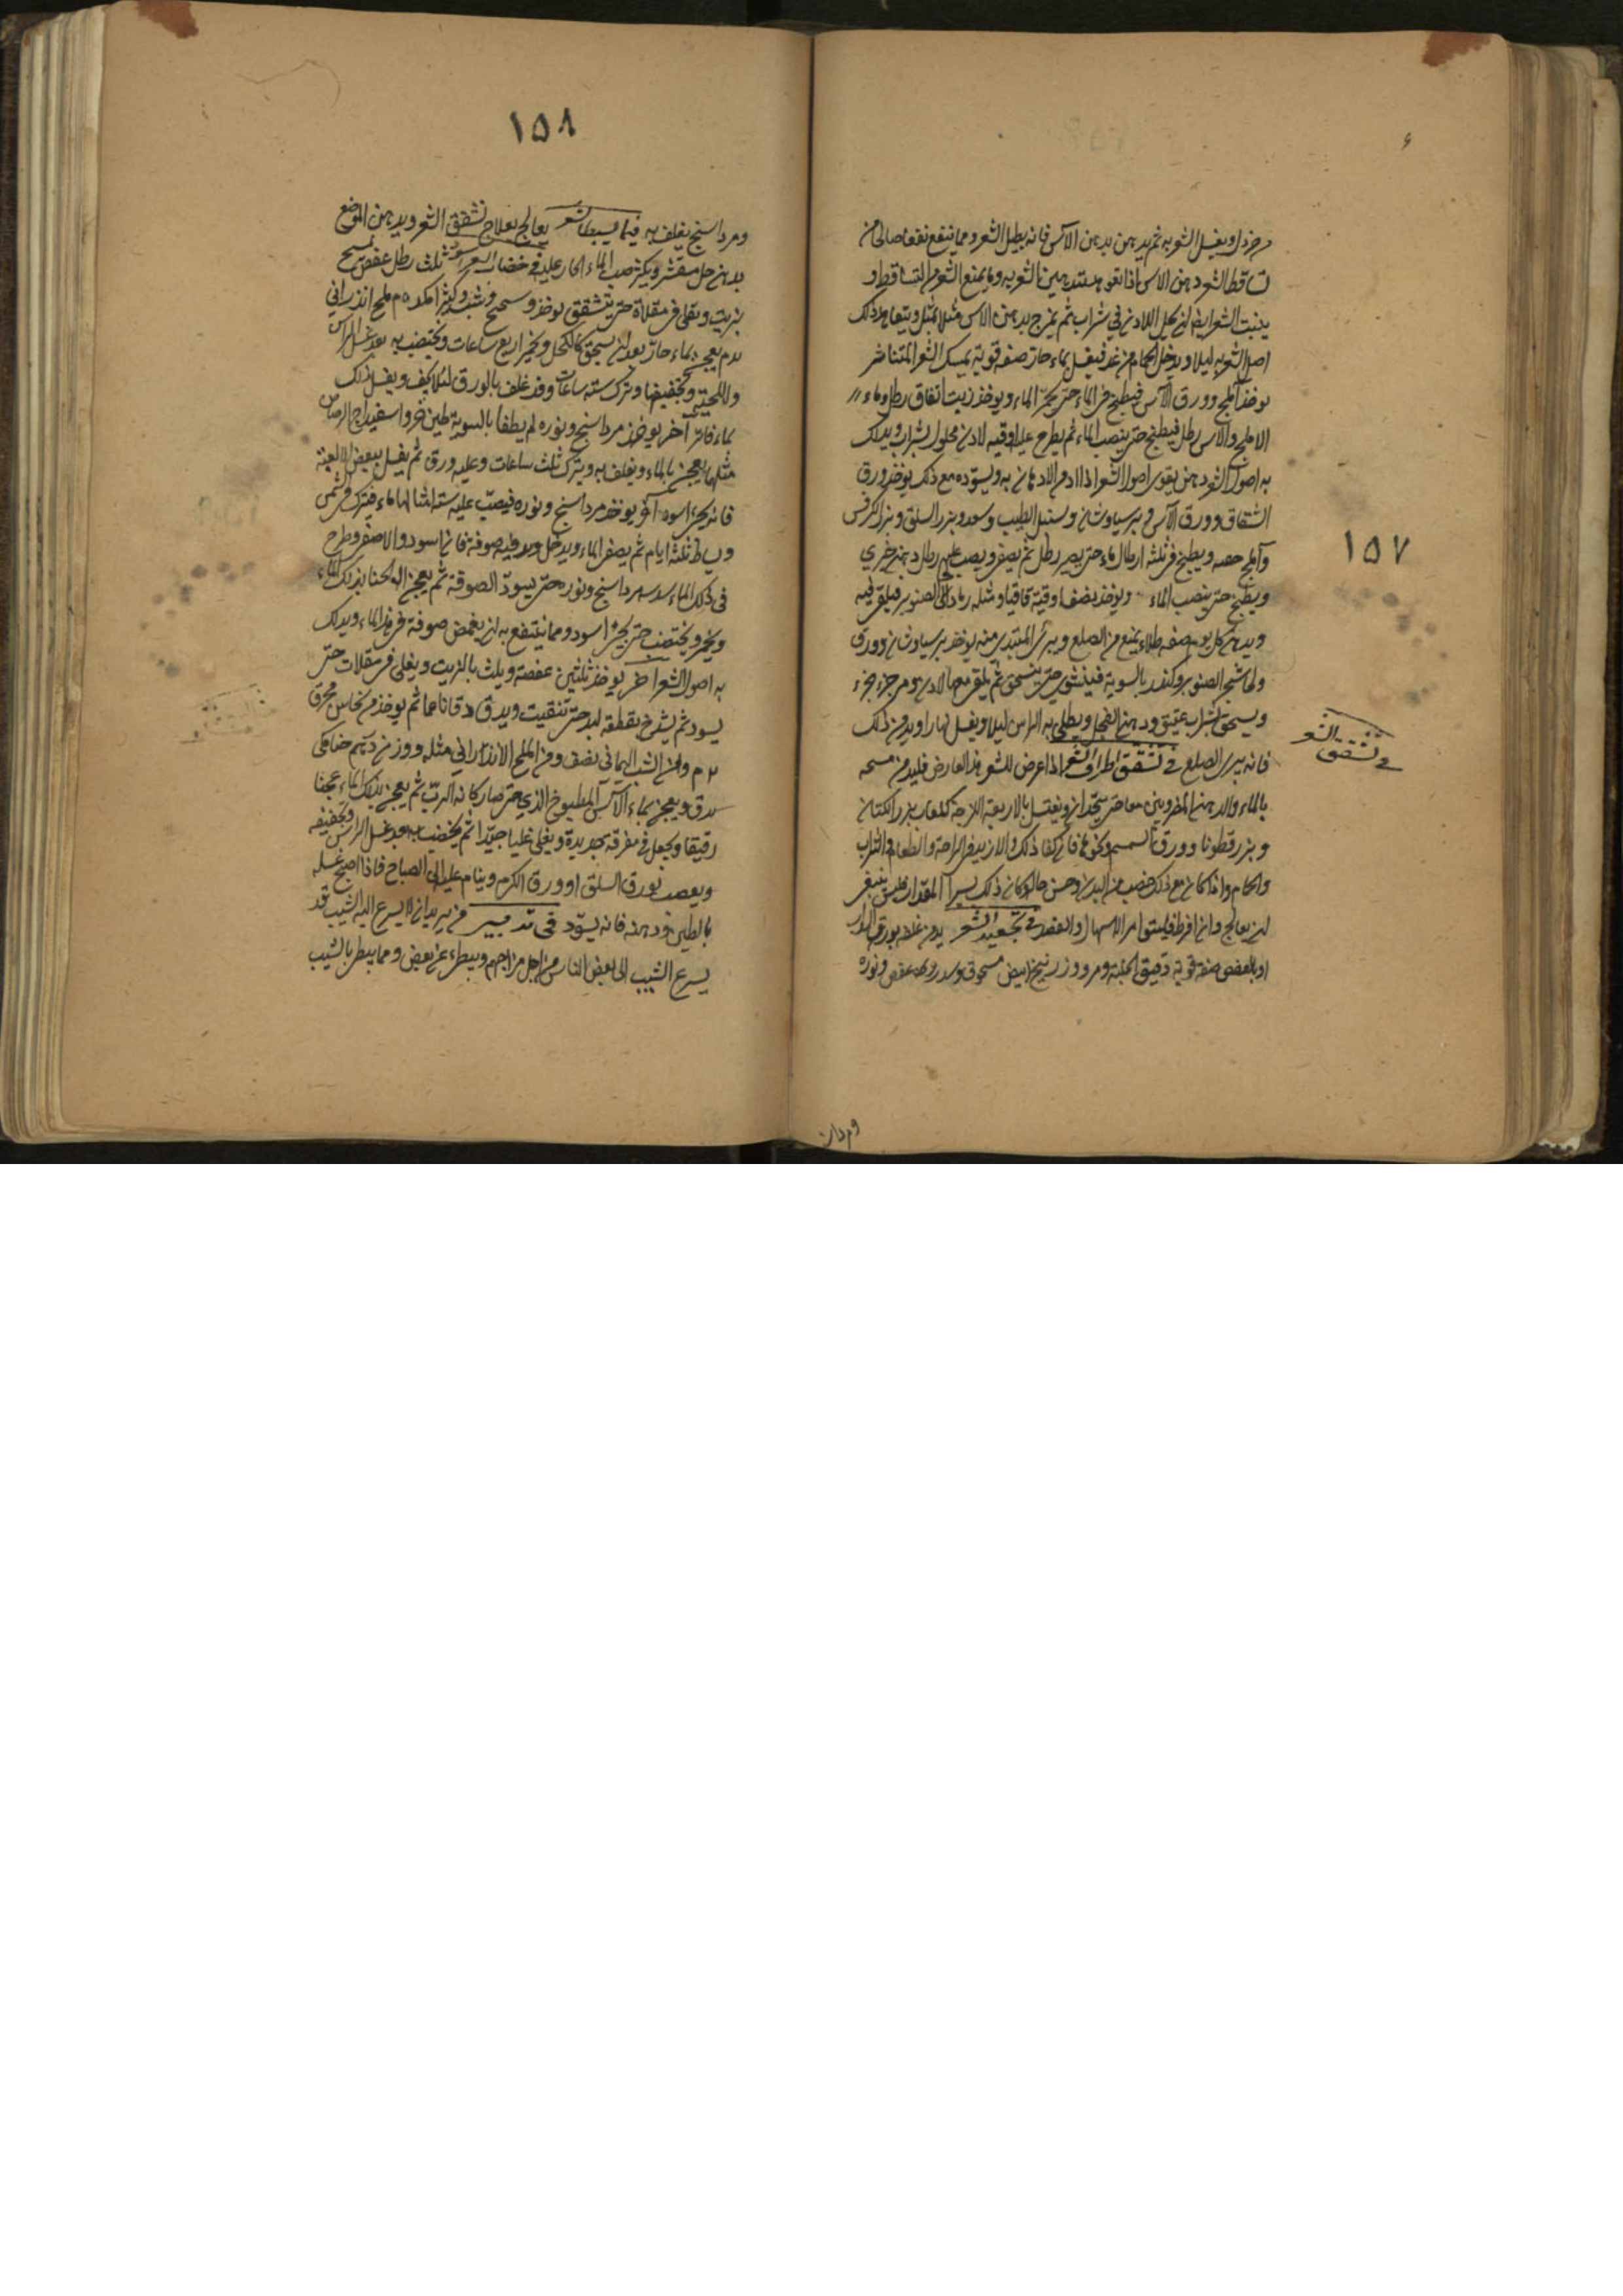 ١٥٧
خردل ويغسل الشعر به ثم يدهن بدهن الآس فانه يطيل الشعر ومما ينفع نفعا صالحا من
تساقط الشعر دهن الاس اذا تدهين الشعر به ومما يمنع الشعر من التساقط و
ينبت الشعر ايضا ان يحل اللادن في شراب ثم يمزج بدهن الاس مثلا بمثل ويتعاهد ذلك
اصل الشعر به ليلا ويدخل الحمام من غد فيغسل بماء حار صفة قوية يمسك الشعر المتناثر
يوخذ املج وورق الآس فيطبخ في الماء حتى يحمر الماء ويوخذ زيت انفاق رطل وماء
الاملج والاس رطل فيطبخ حتى ينصب الماء ثم يطرح عليه اوقيه لادن محلول بشراب ويدلك
به اصول الشعر دهن يقوى اصول الشعر اذا ادم الادهان به ويسوده مع ذلك يوخذ ورق
الشقاق وورق الآس وبرسياوشان وسنبل الطيب وسعد وبزر السلق وبزر الكرفس
وآملج ويطبخ في ثلثة ارطال ماء حتى يصير رطل ثم يصفى ويصب عليه رطل دهن خيري
ويطبخ حتى ينصب الماء ويوخذ نصف اوقية قاقيا ومثله رماد الصنوبر فيلقى فيه
ويدهن كل يوم صفه طلاء يمنع من الصلع ويبرئ المبتدى منه يوخذ برسياوشان وورق
ولحا شجر الصنوبر وكندر بالسوية فيشوى حتى ينسحق ثم يلقى معها لادن ومر جزء جزء
ويسحق بشراب عتيق ودهن الفجل ويطلى به الراس ليلا ويغسل نهارا ويدمن ذلك
فانه يبرى الصلع في تشقق اطراف الشعر اذا عرض للشعر هذا العارض فليدمن مسحه
في تشقق الشعر
بالماء والدهن المضروبين معا حتى يتحدان ويغتسل بالاربعة اللزجة كلعاب بزر الكتان
وبزر قطونا وورق السمسم ونحوها فان كفا ذلك والا زيد في الراحة والطعام والشراب
والحمام واذا كان مع ذلك خصب من البدن وحسن حال وكان ذلك يسيرا المقدار فليس ينبغي
ان يعالج وان افرط فليستقا مر الاسهال والفصد في تجعيد الشعر يدمن غسله بورق السدر
او بالعفص صفة قوية دقيق الحلبة ومر وزرنيخ ابيض مسحوق وسدر وعفص ونوره
ومرداسنج
١٥٨
ومرداسنج يغلف به فيما يسبط الشعر يعالج بعلاج تشقق الشعر ويدهن الموضع
بدهن حل مقشر ويكثر صب الماء الحار عليه في خضاب الشعر ثلث رطل عفص يمسح
بزيت ويقلى في مقلاة حتى يتشقق يوخذ وشب وكثيرا ملح اندراني
ثم يعجن بماء حار بعد ان يسحق كالكحل ويخمر اربع ساعات ويختضب به بعد غسل الراس
واللحية وتجفيفها وترك ستة ساعات وقد غلف بالورق لئلا يجف ويغسل ذلك
بماء فاتر آخر يوخذ مرداسنج ونوره لم يطفا بالسوية طين خر واسفيداج الرصاص
مثلهما يعجن بالماء ويغلف به ويترك ثلث ساعات وعليه ورق ثم يغسل ببعض الالعبة
فانه يجئ اسود آخر يوخذ مرداسنج ونوره فيصب عليه ستة امثالها ماء فيترك في شمس
ويساط ثلثة ايام ثم يصفى الماء ويدخل فيه صوفة فان اسود والا صفى وطرح
في ذلك الماء مرداسنج ونوره حتى يسود الصوفة ثم يعجن الحنا بذلك الماء
ويخمر ويختضب حتى يجئ اسود ومما ينتفع به ان يغمض صوفة في هذا الماء ويدلك
به اصول الشعر اخر يوخذ ثلثين عفصة ويلث بالزيت ويغلى في مقلات حتى
يسود ثم يشرخ بقطعه لبد حتى تنقيت ويدق دقا ناعما ثم يوخذ من نحاس محرق
ومن الشب اليماني نصف ومن الملح الاندراني مثله ووزن درهم حنا مكى
يدق ويعجن بماء الآس المطبوخ الذي حتى صار كانه الرب ثم يعجن بذلك الماء عجنا
رقيقا ويجعل في مغرفة حديدة ويغلى غليا جيدا ثم يخضب به بعد غسل الراس وتجفيفه
ويعصب بورق السلق او ورق الكرم وينام عليه الى الصباح فاذا اصبح غسله
بالطين ودهنه فانه يسود في تدبير من يريد ان لا يسرع اليه الشيب قد
يسرع الشيب الى بعض الناس من اجل مزاجهم ويبطى عن بعض ومما يبطى بالشيب